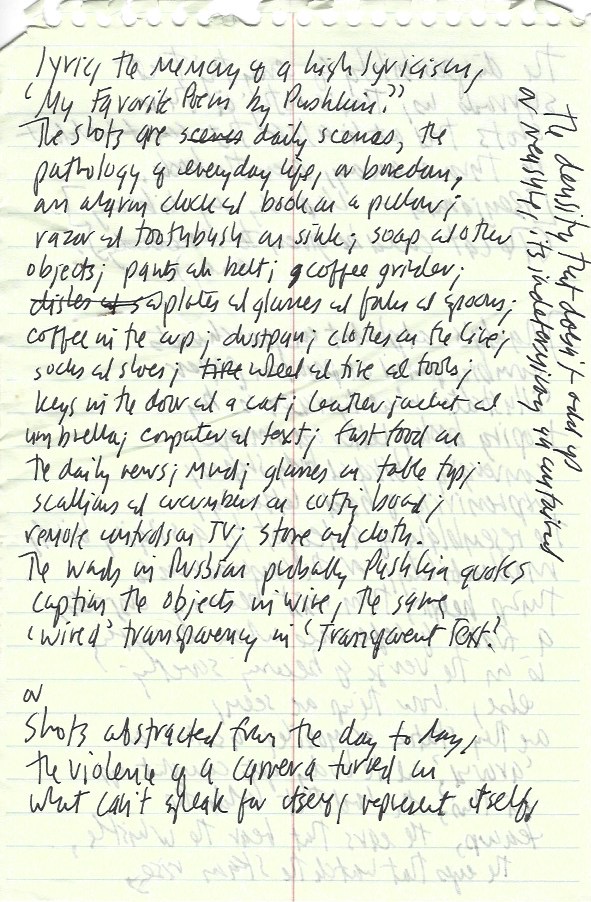 lyrics, the memory of a high lyricism,
'My Favorite Poem by Pushkin.'"
The shots are scenes daily scenes, the
pathology of everyday life, or boredom,
an alarm clock al book on a pillow;
razor al toothbrush on sink; soap al other
objects; pants al belt; coffee grinder;
dishes al plates al glasses al forks al spoons;
coffee in the cup; dustpan; clothes on the line;
socks al shoes; tire wheel al tire al tools;
keys in the door al a cat; leather jacket al
umbrella; computer al text; fast food on
the daily news; mud; glasses on table top;
scallions al cucumbers on cutting board;
remote controls on TV; stove al cloth.
The words in Russian probably Pushkin quotes
caption the objects in wire, the same
'wired' transparency in 'Transparent Text.'
or
Shots abstracted from the day to day,
the violence of a camera turned on
what can't speak for itself, represent itself,
the density that doesn't add up
or measures its indeterminacy